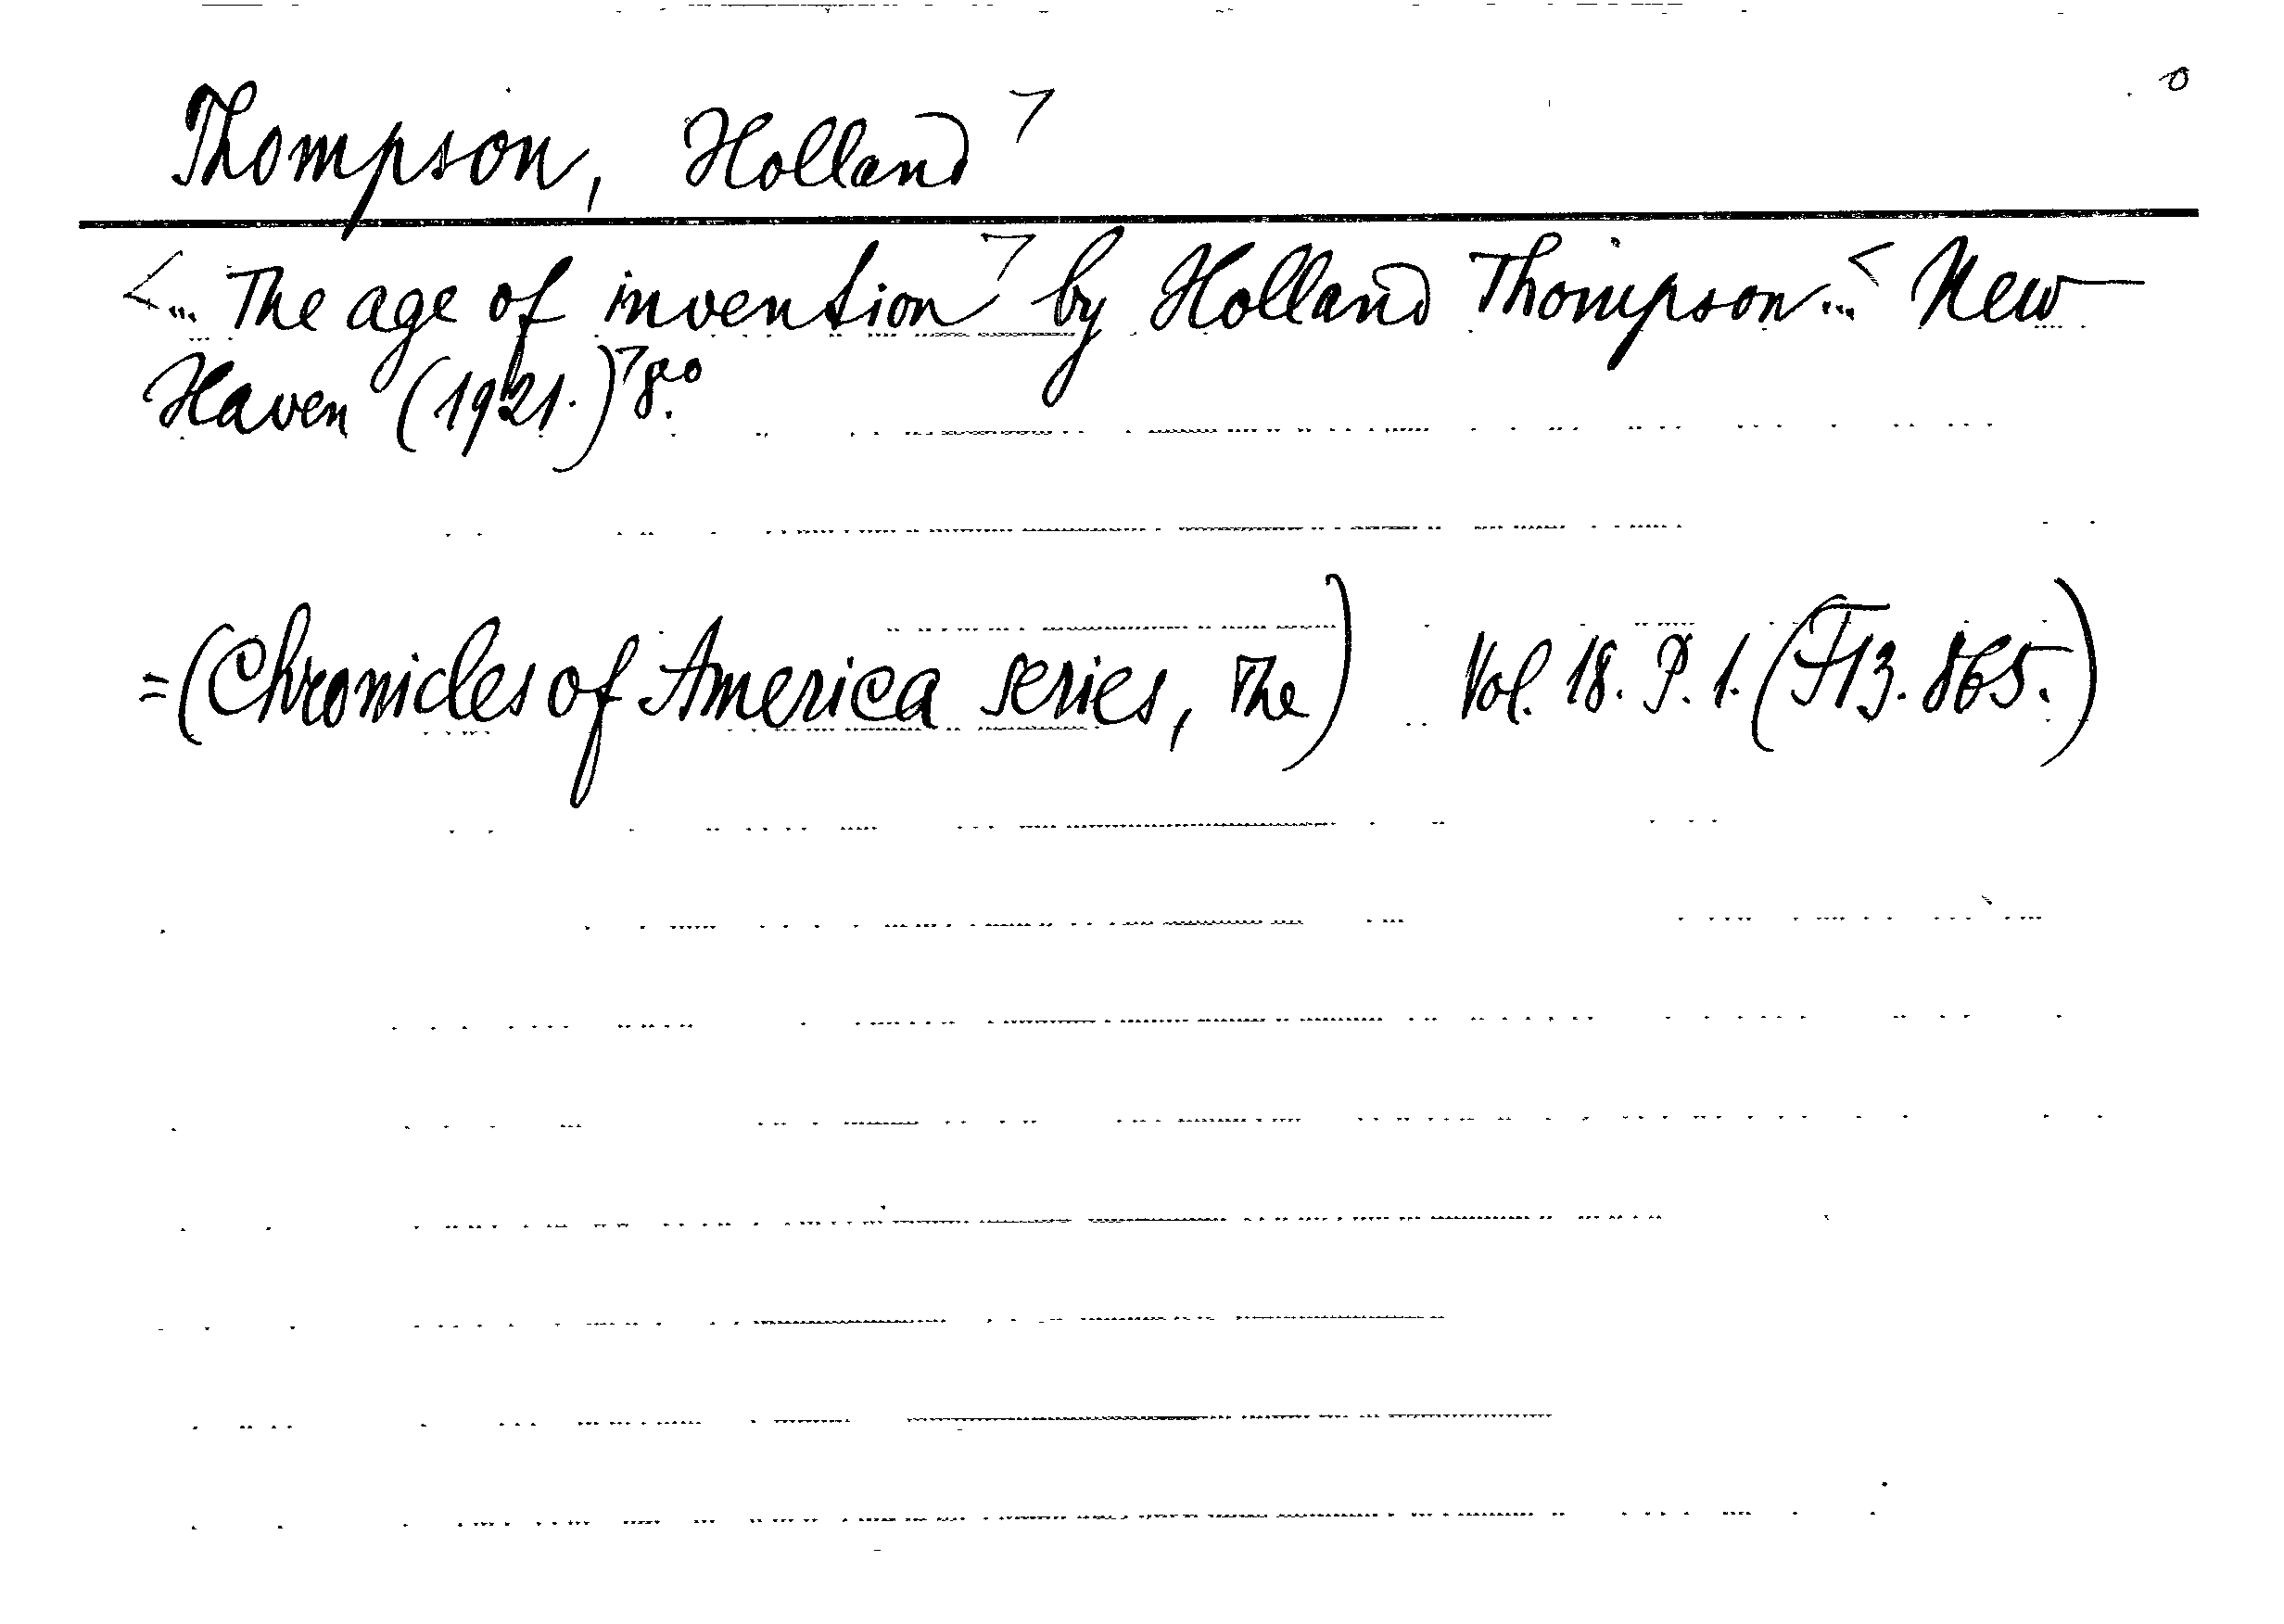 Thompson, Holland
<... The age of invention by Holland Thompson... New
Haven (1921.) 8.°
=(Chronicles of America series, The) Vol. 18. P. 1. (F13.865.)